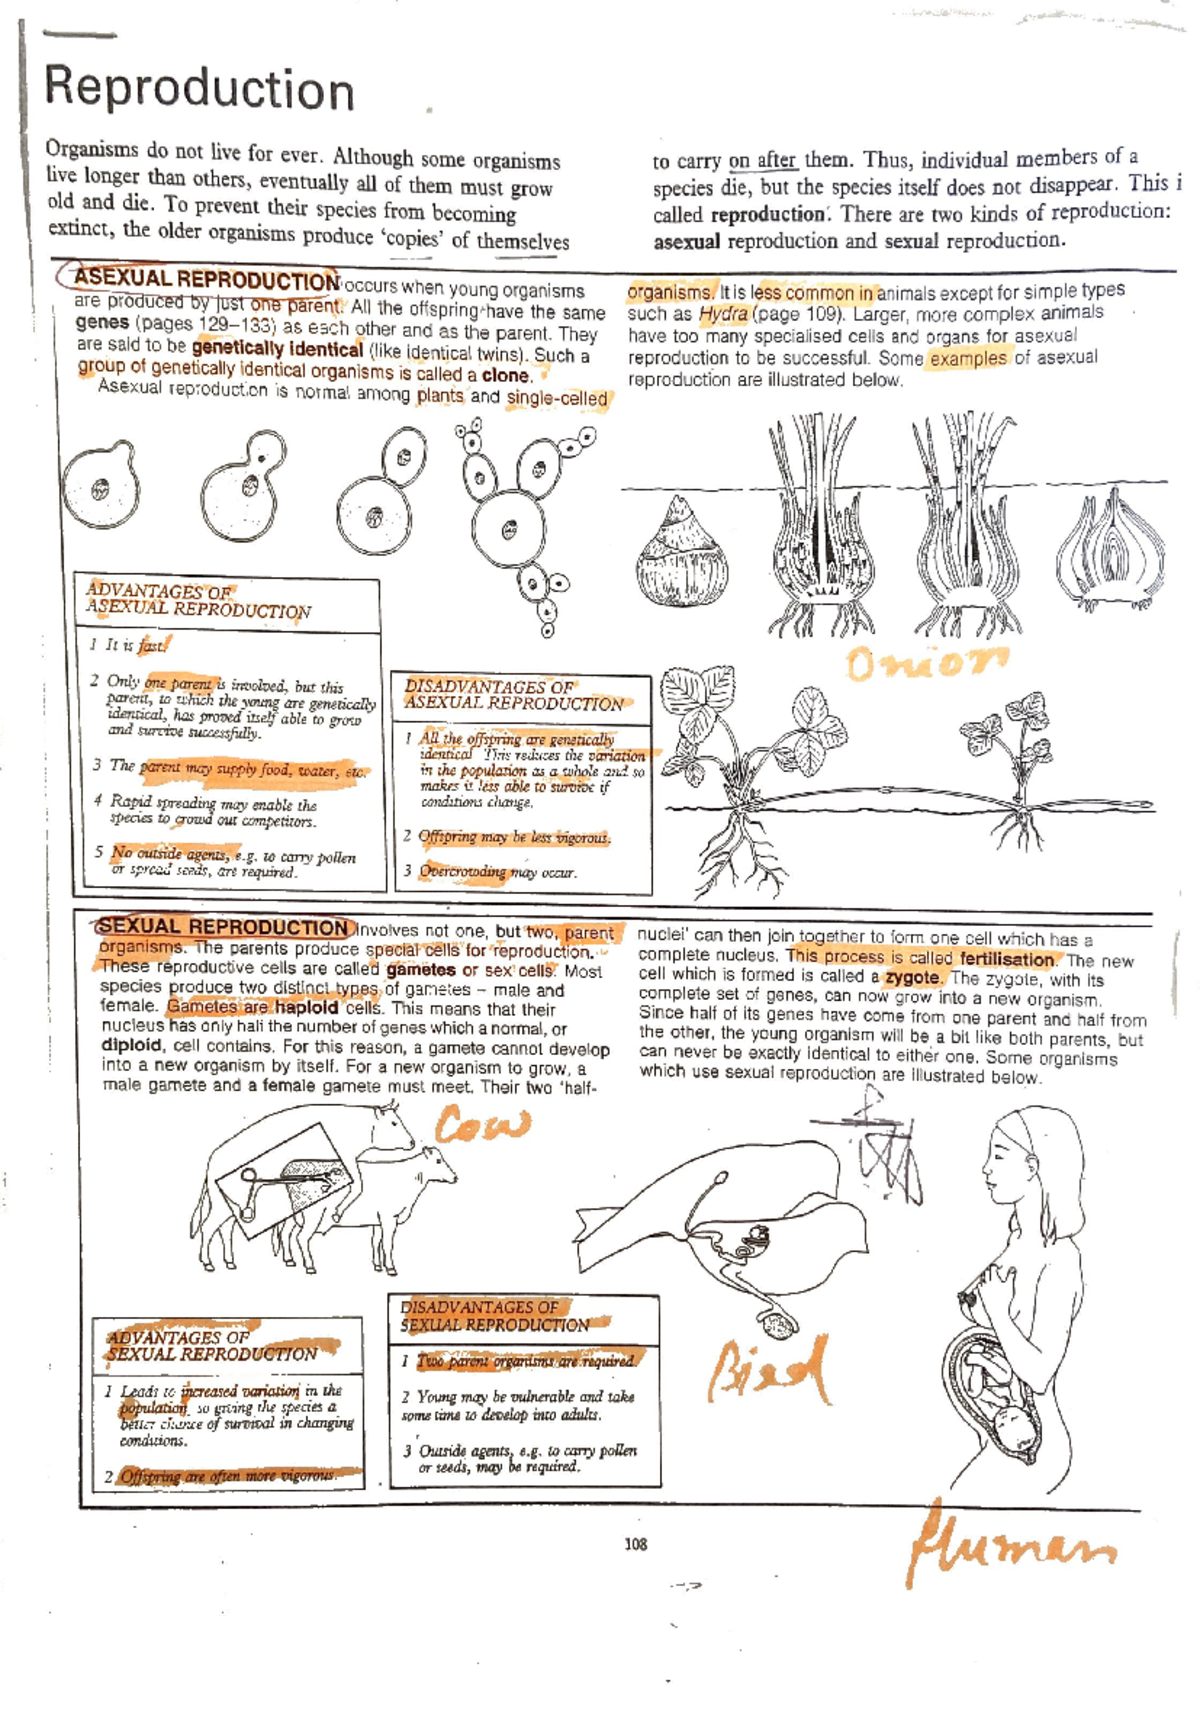 Reproduction
Organisms do not live for ever. Although some organisms
live longer than others, eventually all of them must grow
old and die. To prevent their species from becoming
extinct, the older organisms produce ‘copies’ of themselves
to carry on after them. Thus, individual members of a
species die, but the species itself does not disappear. This i
called reproduction. There are two kinds of reproduction:
asexual reproduction and sexual reproduction.
ASEXUAL REPRODUCTION occurs when young organisms
are produced by just one parent. All the offspring have the same
genes (pages 129–133) as each other and as the parent. They
are said to be genetically identical (like identical twins). Such a
group of genetically identical organisms is called a clone.
Asexual reproduction is normal among plants and single-celled
organisms. It is less common in animals except for simple types
such as Hydra (page 109). Larger, more complex animals
have too many specialised cells and organs for asexual
reproduction to be successful. Some examples of asexual
reproduction are illustrated below.
ADVANTAGES OF
ASEXUAL REPRODUCTION
1 It is fast!
2 Only one parent is involved, but this
parent, to which the young are genetically
identical, has proved itself able to grow
and survive successfully.
3 The parent may supply food, water, etc.
4 Rapid spreading may enable the
species to crowd out competitors.
5 No outside agents, e.g. to carry pollen
or spread seeds, are required.
DISADVANTAGES OF
ASEXUAL REPRODUCTION
1 All the offspring are genetically
identical This reduces the variation
in the population as a whole and so
makes it less able to survive if
conditions change.
2 Offspring may be less vigorous.
3 Overcrowding may occur.
Onion
SEXUAL REPRODUCTION involves not one, but two, parent
organisms. The parents produce special cells for reproduction.
These reproductive cells are called gametes or sex cells. Most
species produce two distinct types of gametes – male and
female. Gametes are haploid cells. This means that their
nucleus has only half the number of genes which a normal, or
diploid, cell contains. For this reason, a gamete cannot develop
into a new organism by itself. For a new organism to grow, a
male gamete and a female gamete must meet. Their two ‘half-
nuclei’ can then join together to form one cell which has a
complete nucleus. This process is called fertilisation. The new
cell which is formed is called a zygote. The zygote, with its
complete set of genes, can now grow into a new organism.
Since half of its genes have come from one parent and half from
the other, the young organism will be a bit like both parents, but
can never be exactly identical to either one. Some organisms
which use sexual reproduction are illustrated below.
Cow
ADVANTAGES OF
SEXUAL REPRODUCTION
1 Leads to increased variation in the
population so giving the species a
better chance of survival in changing
conditions.
2 Offspring are often more vigorous.
DISADVANTAGES OF
SEXUAL REPRODUCTION
1 Two parent organisms are required.
2 Young may be vulnerable and take
some time to develop into adults.
3 Outside agents, e.g. to carry pollen
or seeds, may be required.
Bird
108
Human